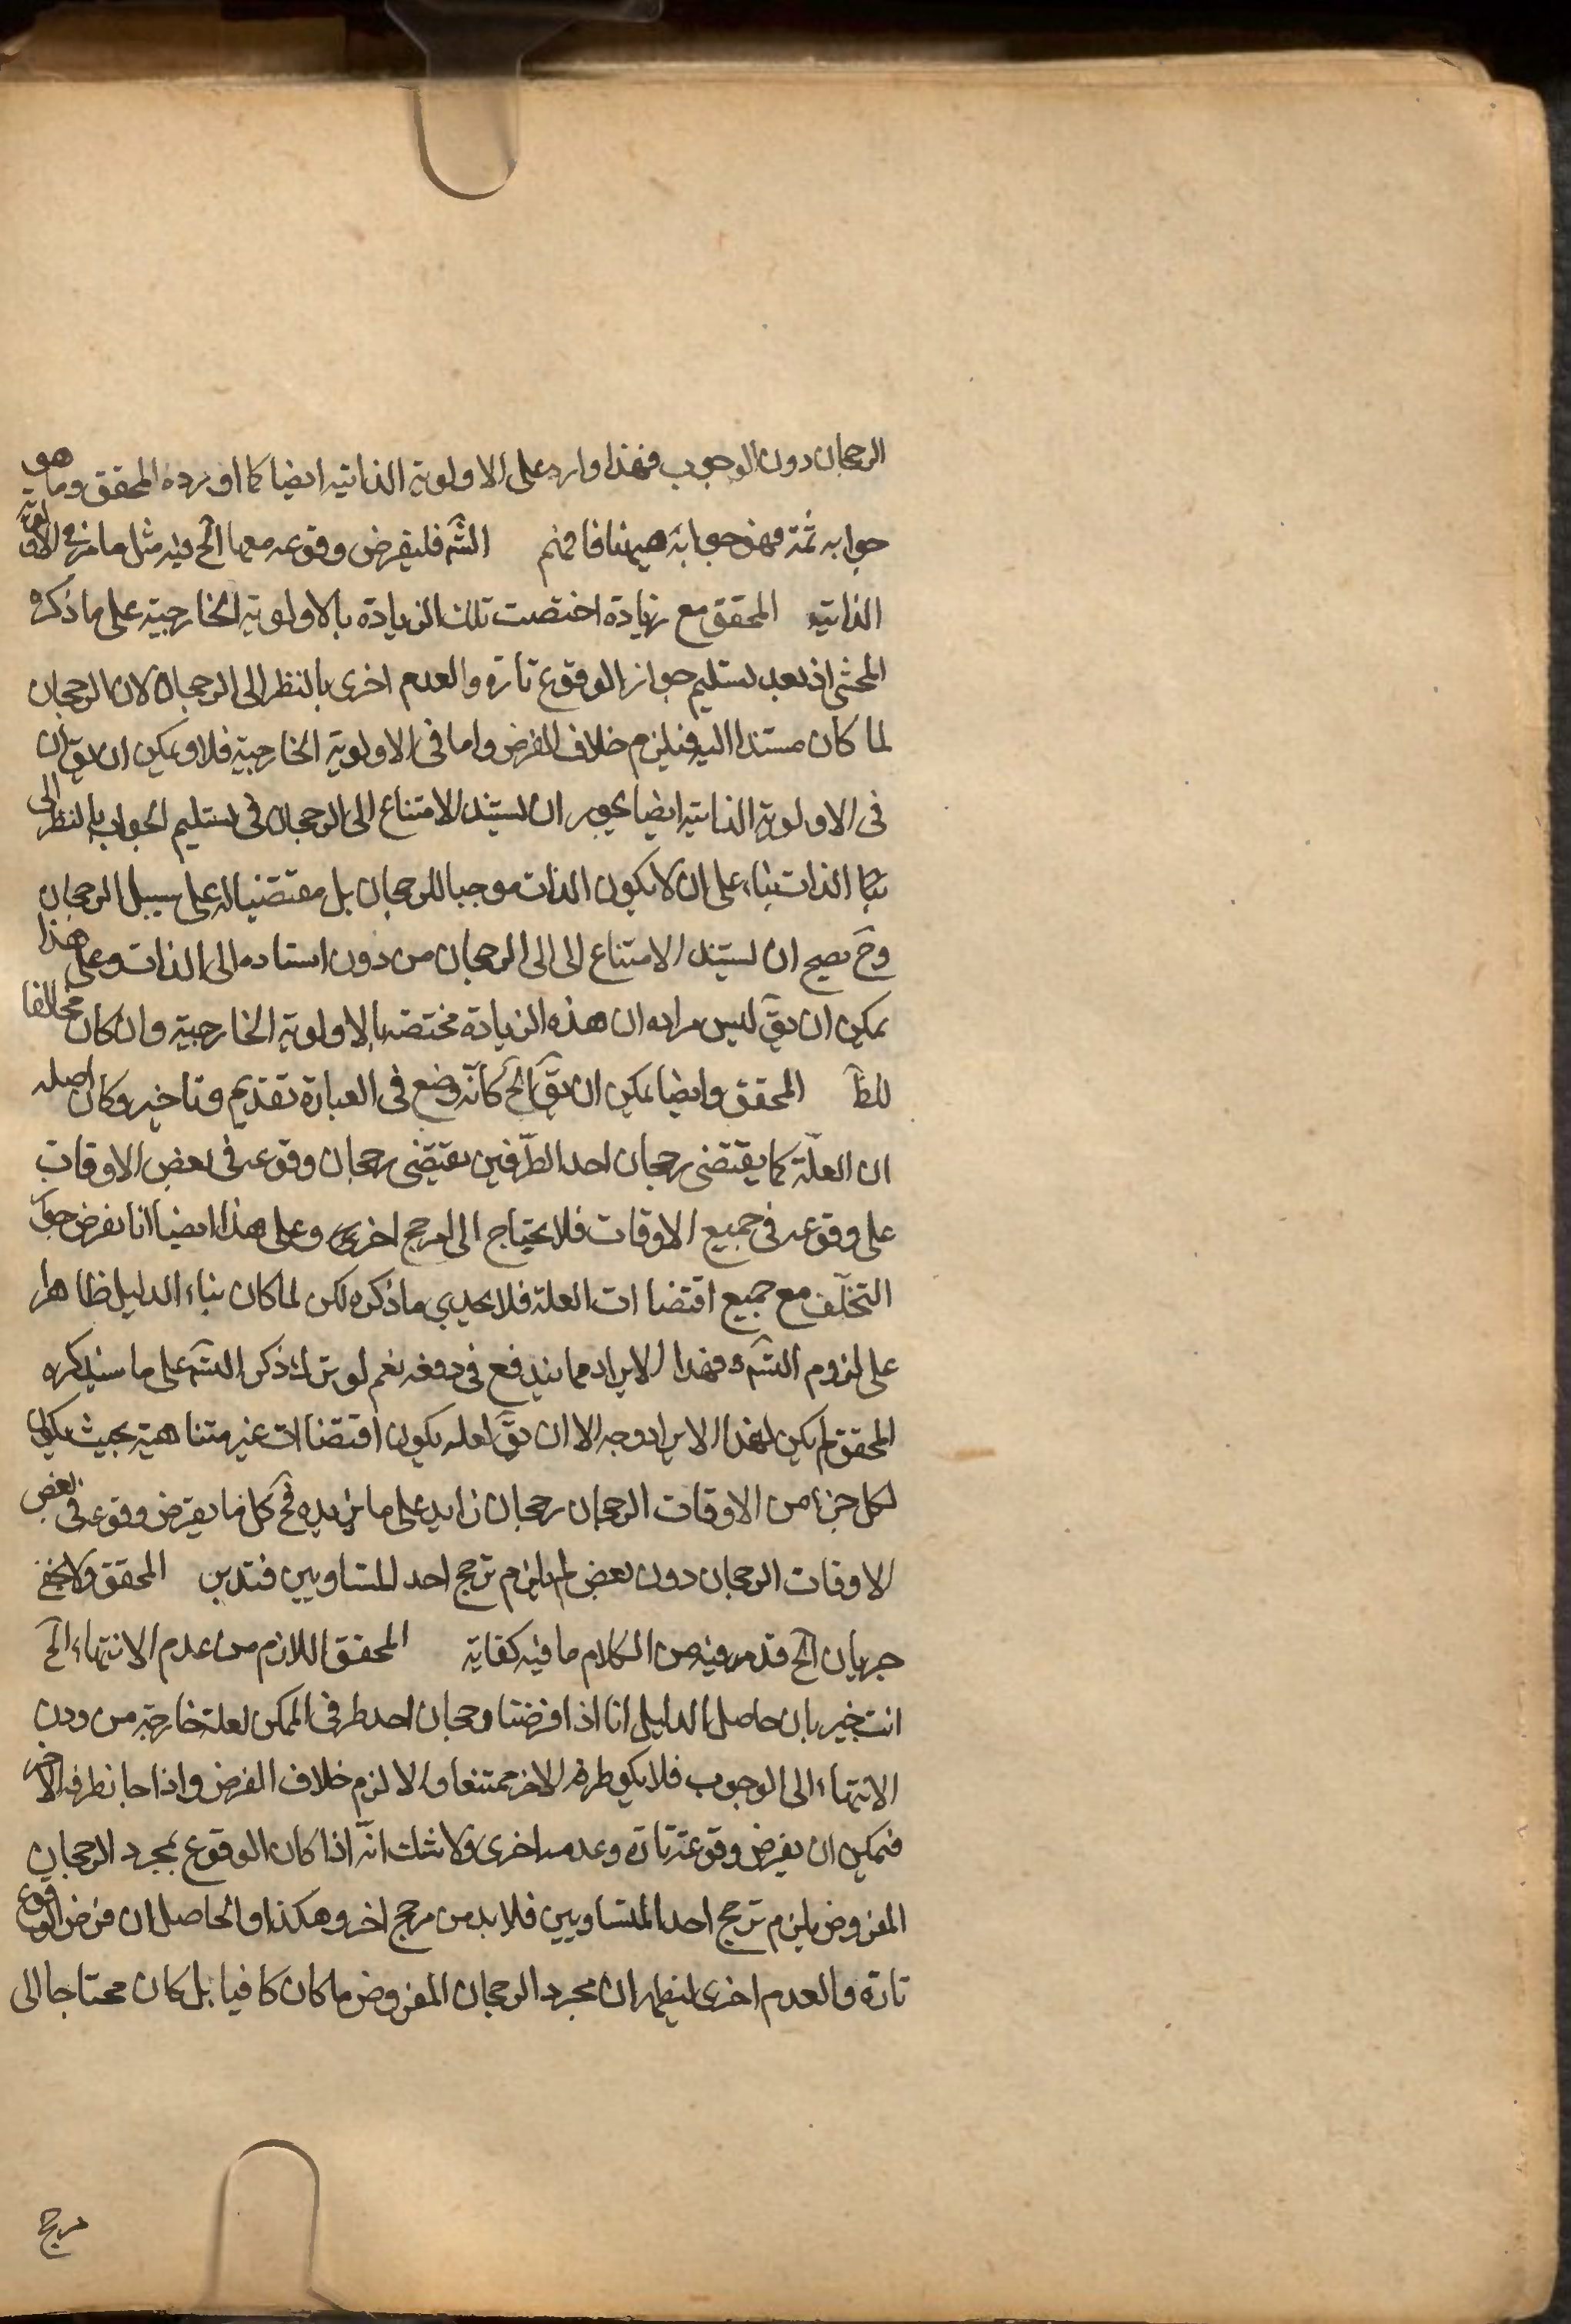 الرجحان دون الوجوب فهذا وارد على الاولوية الذاتية ايضا كما اورده المحقق وما هو
جوابه ثمة فهو جوابه ههنا فافهم الشَ فليفرض وقوعه معها الخ فيه مثل ما مر في الاولوية
الذاتية المحقق مع زيادة اختصت تلك الزيادة بالاولوية الخارجية على ما ذكره
المحشى اذ بعد تسليم جواز الوقوع تارة والعدم اخرى بالنظر الى الرجحان لان الرجحان
لما كان مستندا اليه فيلزم خلاف الفرض واما في الاولوية الخارجية فلا ويمكن ان يقَ ان
في الاولوية الذاتية ايضا يجوز ان يستند الامتناع الى الرجحان في تسليم الجواب بالنظر الى
الذات بناء على ان لا يكون الذات موجبا للرجحان بل مقتضيا له على سبيل الرجحان
وحَ يصح ان يستند الامتناع الى الى الرجحان من دون استناده الى الذات وعلى هذا
يمكن ان يقَ ليس مراده ان هذه الزيادة مختصة بالاولوية الخارجية وان كان مخالفا
للظَ المحقق وايضا يمكن ان يقَ الخ كانّه وضع في العبارة تقديم وتاخير وكان اصله
ان العلّة كما يقتضى رجحان احد الطّرفين يقتضى رجحان وقوعه في بعض الاوقات
على وقوعه في جميع الاوقات فلا يحتاج الى مرجح اخر وعلى هذا ايضا انا نفرض جواَ
التخلّف مع جميع اقتضاات العلة فلا يجدي ما ذكره لكن لما كان بناء الدليل ظاهرا
على لزوم التسَ وفهذا الايراد مما يندفع في دفعه نعم لو ترك ذكر التسَ على ما سيذكره
المحقق لم يكن لهذا الايراد وجه الا ان يقَ لعله يكون اقتضاات غير متناهية بحيث يكون
لكل جزء من الاوقات الرجحان رجحان زايد على ما يزيده فحَ كل ما يفرض وقوعه في بعض
الاوقات الرجحان دون بعض لم يلزم ترجح احد المتساويين فتدبر المحقق ولا يخفى
جريان الخ قد مر فيه من الكلام ما فيه كفاية المحقق اللازم من عدم الانتهاء الخ
انت خبير بان حاصل الدليل انا اذا فرضنا رجحان احد طرفى الممكن لعلة خارجة من دون
الانتهاء الى الوجوب فلا يكو طرفه الاخر ممتنعا والا لزم خلاف الفرض واذا جاز طرفه الاخر
فيمكن ان يفرض وقوعه تارة وعدمه اخرى ولا شك انّه اذا كان الوقوع بمجرد الرجحان
المفروض يلزم ترجح احد المتساويين فلا بد من مرجح اخر وهكذا والحاصل ان فرض الوقوع
تارة والعدم اخرى ليظهر ان مجرد الرجحان المفروض ما كان كافيا بل كان محتاجا الى
مرجح